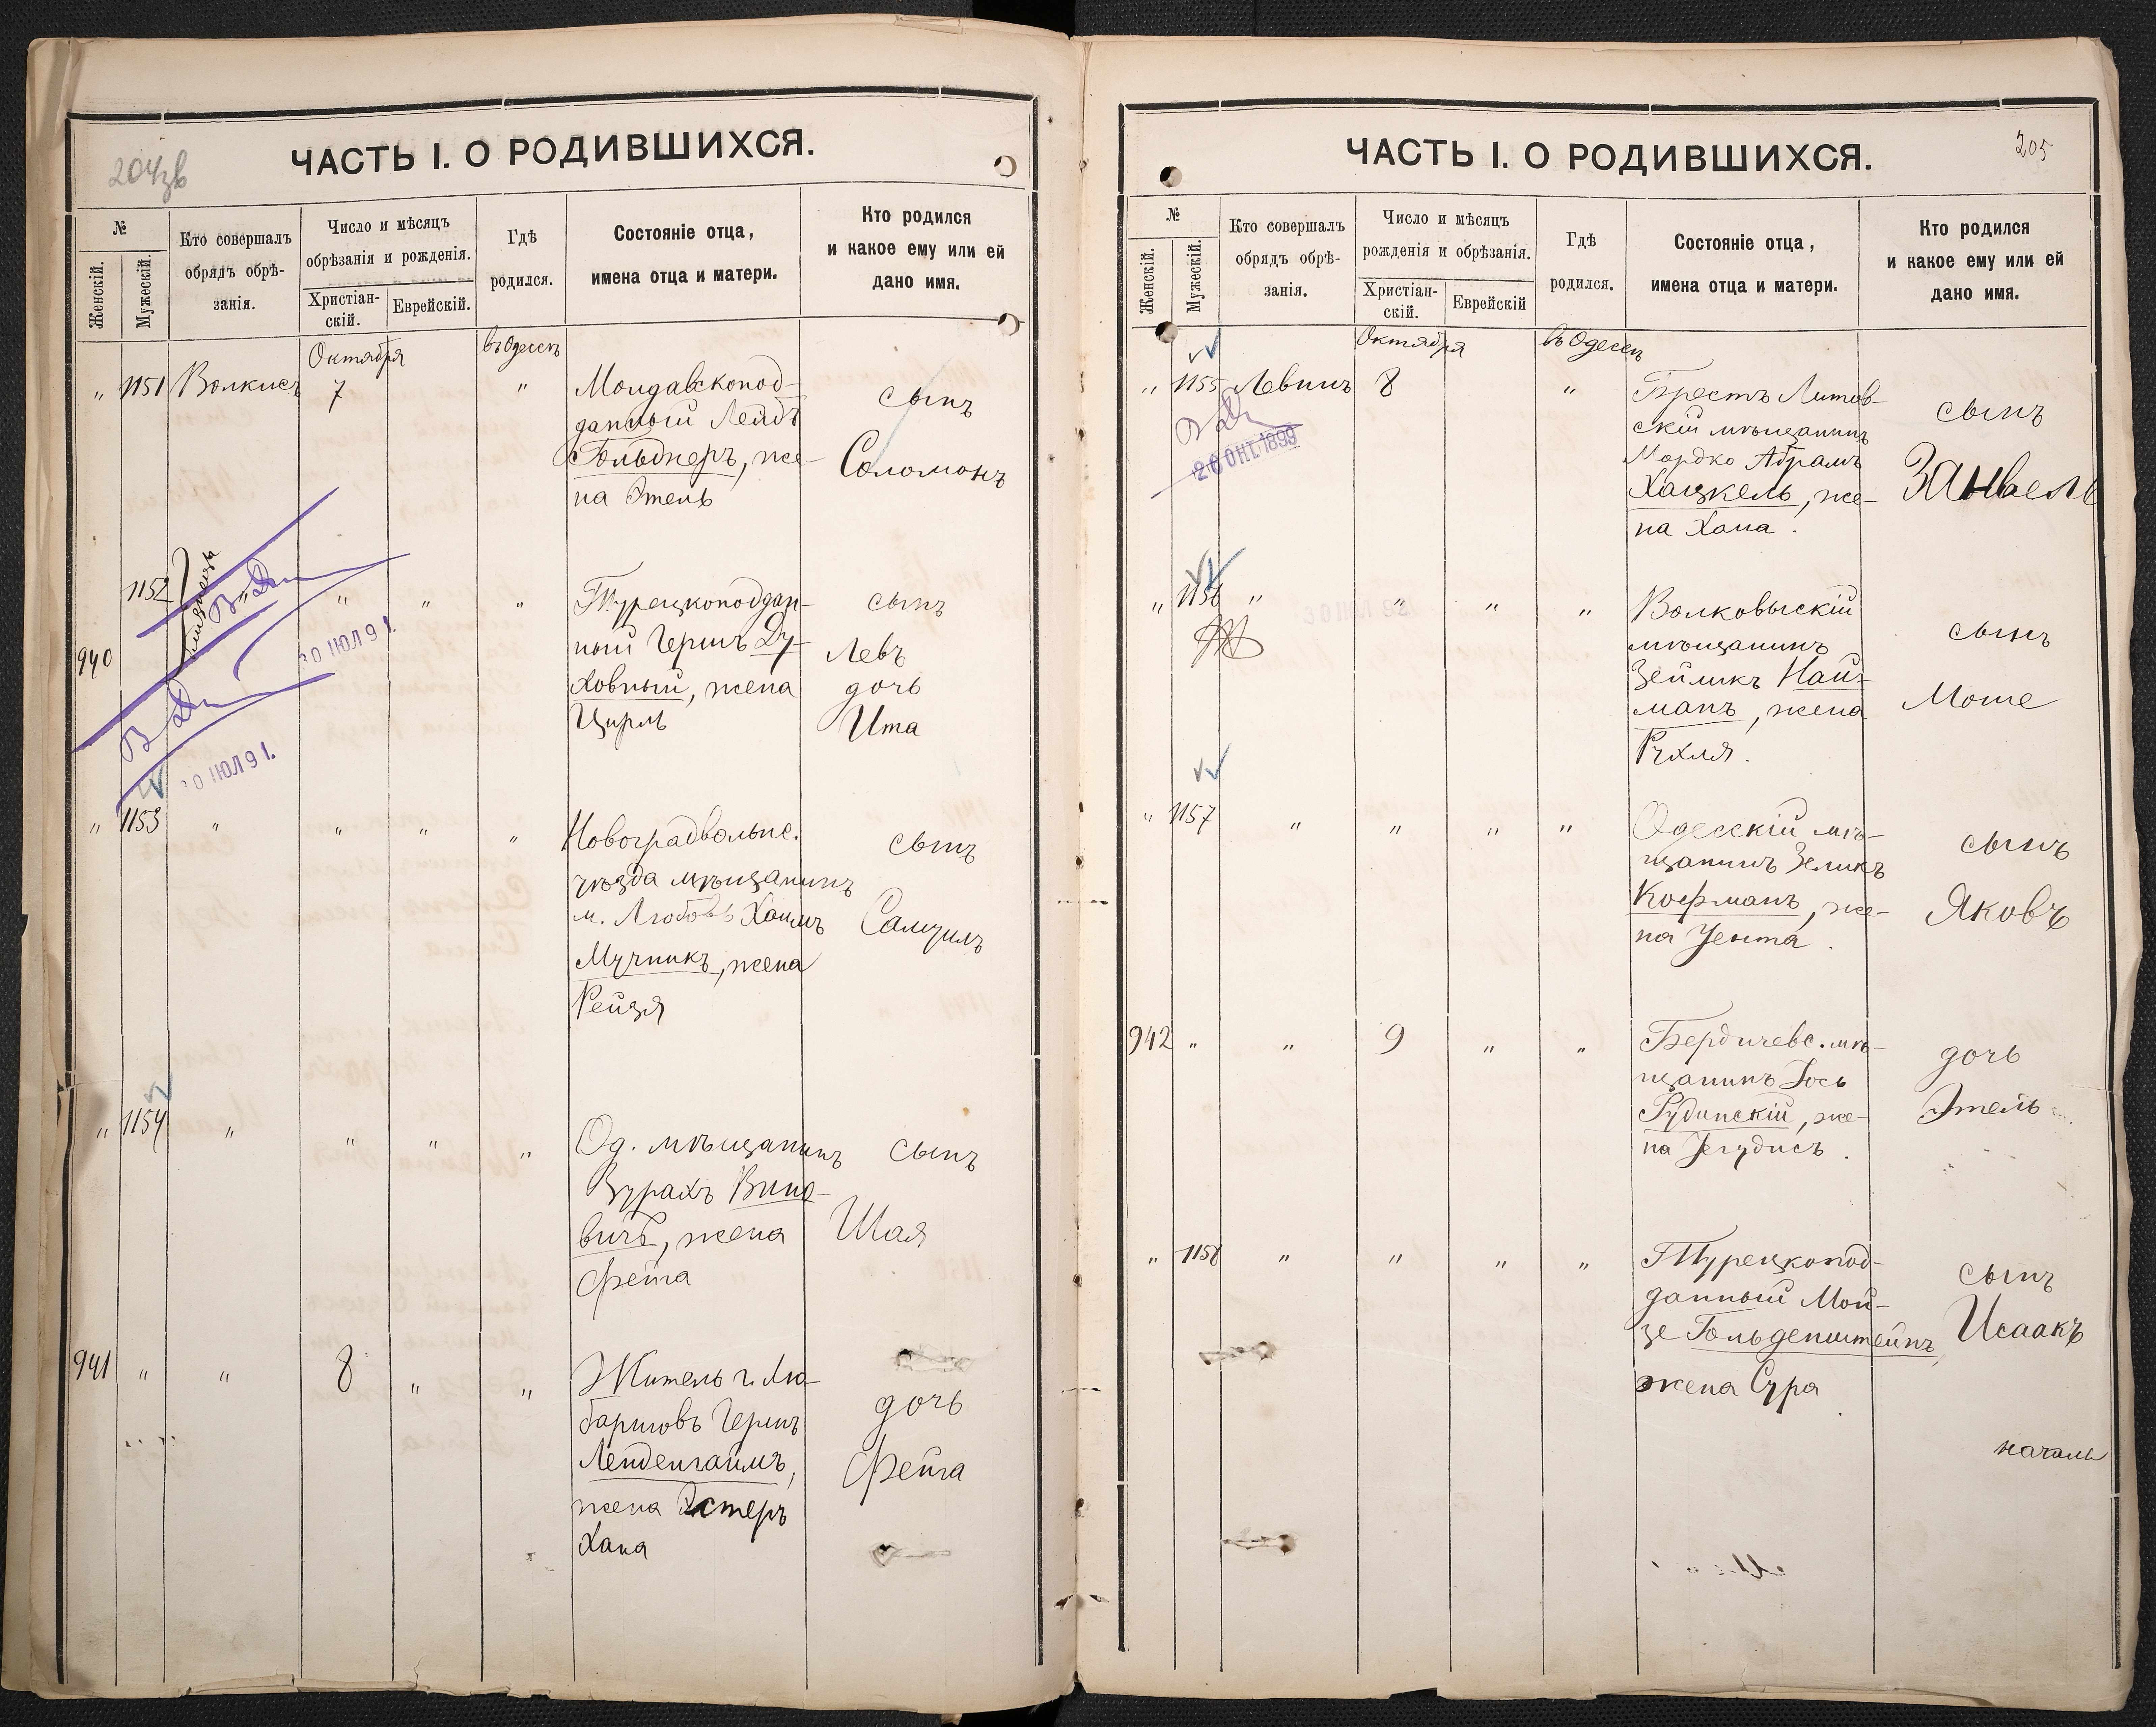 204зв
ЧАСТЬ I. О РОДИВШИХСЯ.
№
Женскій.
Мужескій.
Кто совершалъ
обрядъ обрѣ-
занія.
Число и мѣсяцъ
обрѣзанія и рожденія.
Христіан-
скій.
Еврейскій.
Гдѣ
родился.
Состояніе отца,
имена отца и матери.
Кто родился
и какое ему или ей
дано имя.
Октября
въ Одессѣ
" 1151 Волкисъ 7 "
Молдавскопод-
данный Лейдъ
Гольднеръ, же-
на Этель
сынъ
Соломонъ
1152 " " " "
940
близнецы
30 ІЮЛ 91.
30 ІЮЛ 91.
Турецкоподдан-
ный Гершъ Ду-
ховный, жена
Цирль
сынъ
Левъ
дочь
Ита
" 1153 " " " "
Новоградволынс.
уѣзда мѣщанинъ
м. Любовь Хаимъ
Мучникъ, жена
Рейзя
сынъ
Самуилъ
" 1154 " " " "
Од. мѣщанинъ
Зурахъ Вино-
вичъ, жена
Фейга
сынъ
Шая
941 " " 8 " "
Житель г. Лю-
бартовъ Гершъ
Ленденгаимъ,
жена Эстеръ
Хана
дочь
Фейга
205
ЧАСТЬ I. О РОДИВШИХСЯ.
№
Женскій.
Мужескій.
Кто совершалъ
обрядъ обрѣ-
занія.
Число и мѣсяцъ
рожденія и обрѣзанія.
Христіан-
скій.
Еврейскій
Гдѣ
родился.
Состояніе отца,
имена отца и матери.
Кто родился
и какое ему или ей
дано имя.
Октября
въ Одессѣ
" 1155 Левинъ 8 "
26 ОКТ. 1899
Брестъ Литов-
скій мѣщанинъ
Мордко Абрамъ
Хацкель, же-
на Хана.
сынъ
Занвель
" 1156 " " " "
Волковыскій
мѣщанинъ
Зейликъ Най-
манъ, жена
Рухля.
сынъ
Моше
" 1157 " " " "
Одесскій мѣ-
щанинъ Зеликъ
Кофманъ, же-
на Ента.
сынъ
Яковъ
942 " " 9 " "
Бердичевс. мѣ-
щанинъ Іось
Рудинскій, же-
на Іегудисъ.
дочь
Этель
" 1158 " " " "
Турецкопод-
данный Мой-
зе Гольденштейнъ,
жена Сура
сынъ
Исаакъ